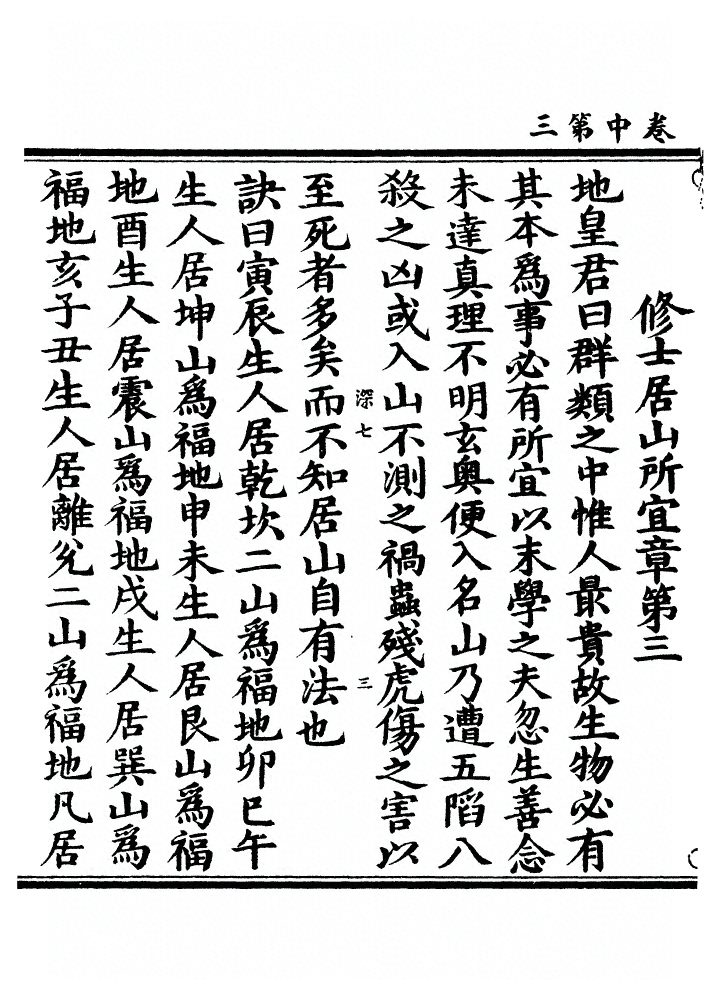 卷中第三
修士居山所宜章第三
地皇君曰群類之中惟人最貴故生物必有
其本爲事必有所宜以末學之夫忽生善念
未達真理不明玄奧便入名山乃遭五陷八
殺之凶或入山不測之禍蟲殘虎傷之害以
深七 三
至死者多矣而不知居山自有法也
訣曰寅辰生人居乾坎二山爲福地卯巳午
生人居坤山爲福地申未生人居艮山爲福
地酉生人居震山爲福地戌生人居巽山爲
福地亥子丑生人居離兊二山爲福地凡居